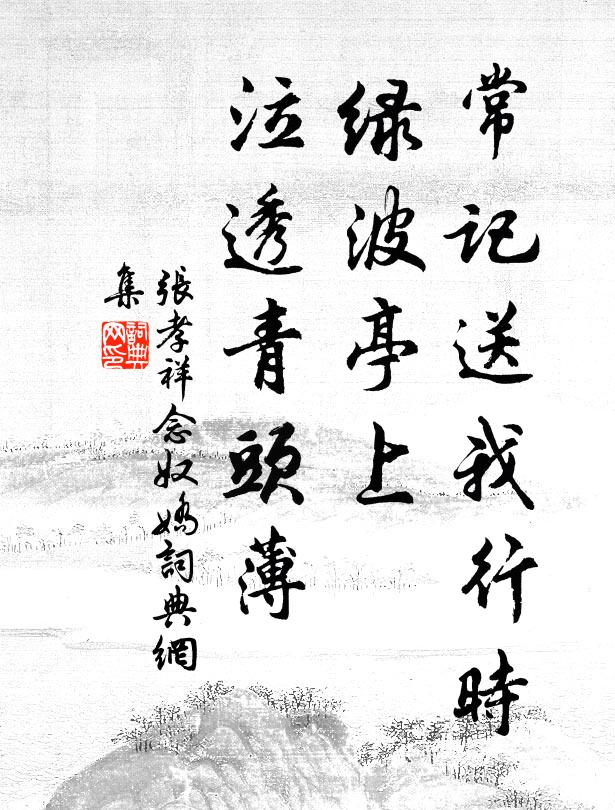 常記送我行時
緑波亭上
泣透青頭薄
張孝祥念奴嬌詞典網
集
詞典网印